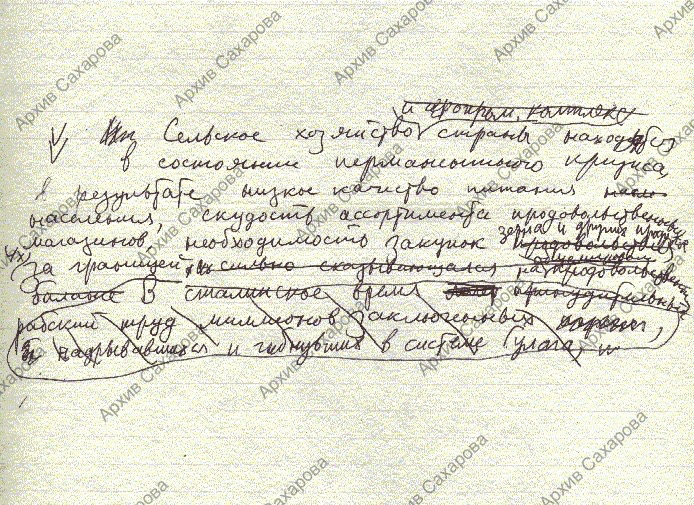 и агропром. комплекс
V Сельское хозяйство страны находится
в состоянии перманентного кризиса,
в результате низкое качество питания
населения, скудость ассортимента продовольственных
зерна и других продуктов
магазинов, необходимость закупок продовольствия
за границей сильно сказывающаяся на продовольственном
балансе В сталинское время принудительный
рабский труд миллионов заключенных
надрывавшихся и гибнувших в системе Гулага, и
Архив Сахарова
Архив Сахарова
Архив Сахарова
Архив Сахарова
Архив Сахарова
Архив Сахарова
Архив Сахарова
Архив Сахарова
Архив Сахарова
Архив Сахарова
Архив Сахарова
Архив Сахарова
Архив Сахарова
Архив Сахарова